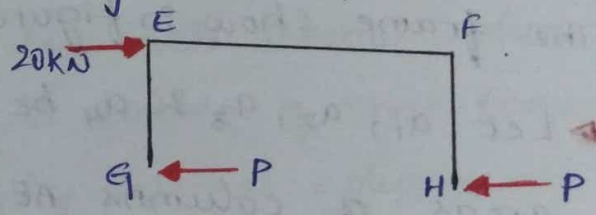 E F
20KN
G P H P